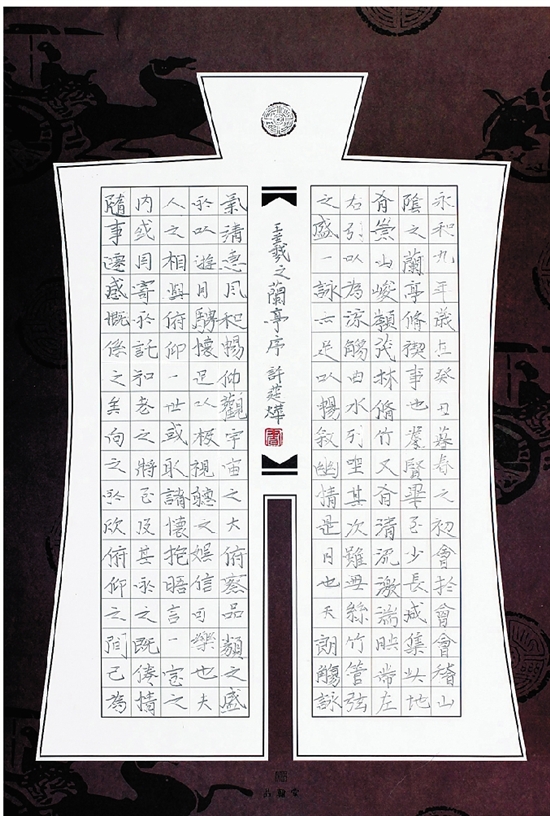 永和九年歲在癸丑暮春之初會於會會稽山
陰之蘭亭脩禊事也羣賢畢至少長咸集此地
有崇山峻領茂林脩竹又有清流激湍映帶左
右引以為流觴曲水列坐其次雖無絲竹管弦
之盛一詠亦足以暢敘幽情是日也天朗觴詠
王羲之蘭亭序 許莛燁
氣清惠風和暢仰觀宇宙之大俯察品類之盛
所以遊目騁懷足以極視聽之娛信可樂也夫
人之相與俯仰一世或取諸懷抱晤言一室之
内或因寄所託和老之將至及其所之既倦情
隨事遷感慨係之矣向之所欣俯仰之間已為